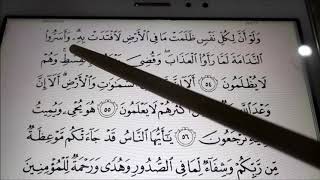 وَلَوْ أَنَّ لِكُلِّ نَفْسٍ ظَلَمَتْ مَا فِي الْأَرْضِ لَافْتَدَتْ بِهِ ۗ وَأَسَرُّوا
النَّدَامَةَ لَمَّا رَأَوُا الْعَذَابَ ۖ وَقُضِيَ بِالْقِسْطِ ۚ وَهُمْ
لَا يُظْلَمُونَ ٥٤ أَلَا إِنَّ السَّمَاوَاتِ وَالْأَرْضِ ۗ أَلَا إِنَّ
وَعْدَ أَكْثَرَهُمْ لَا يَعْلَمُونَ ٥٥ هُوَ يُحْيِي وَيُمِيتُ
تُرْجَعُونَ ٥٦ يَا أَيُّهَا النَّاسُ قَدْ جَاءَتْكُمْ مَوْعِظَةٌ
مِنْ رَبِّكُمْ وَشِفَاءٌ لِمَا فِي الصُّدُورِ وَهُدًى وَرَحْمَةٌ لِلْمُؤْمِنِينَ